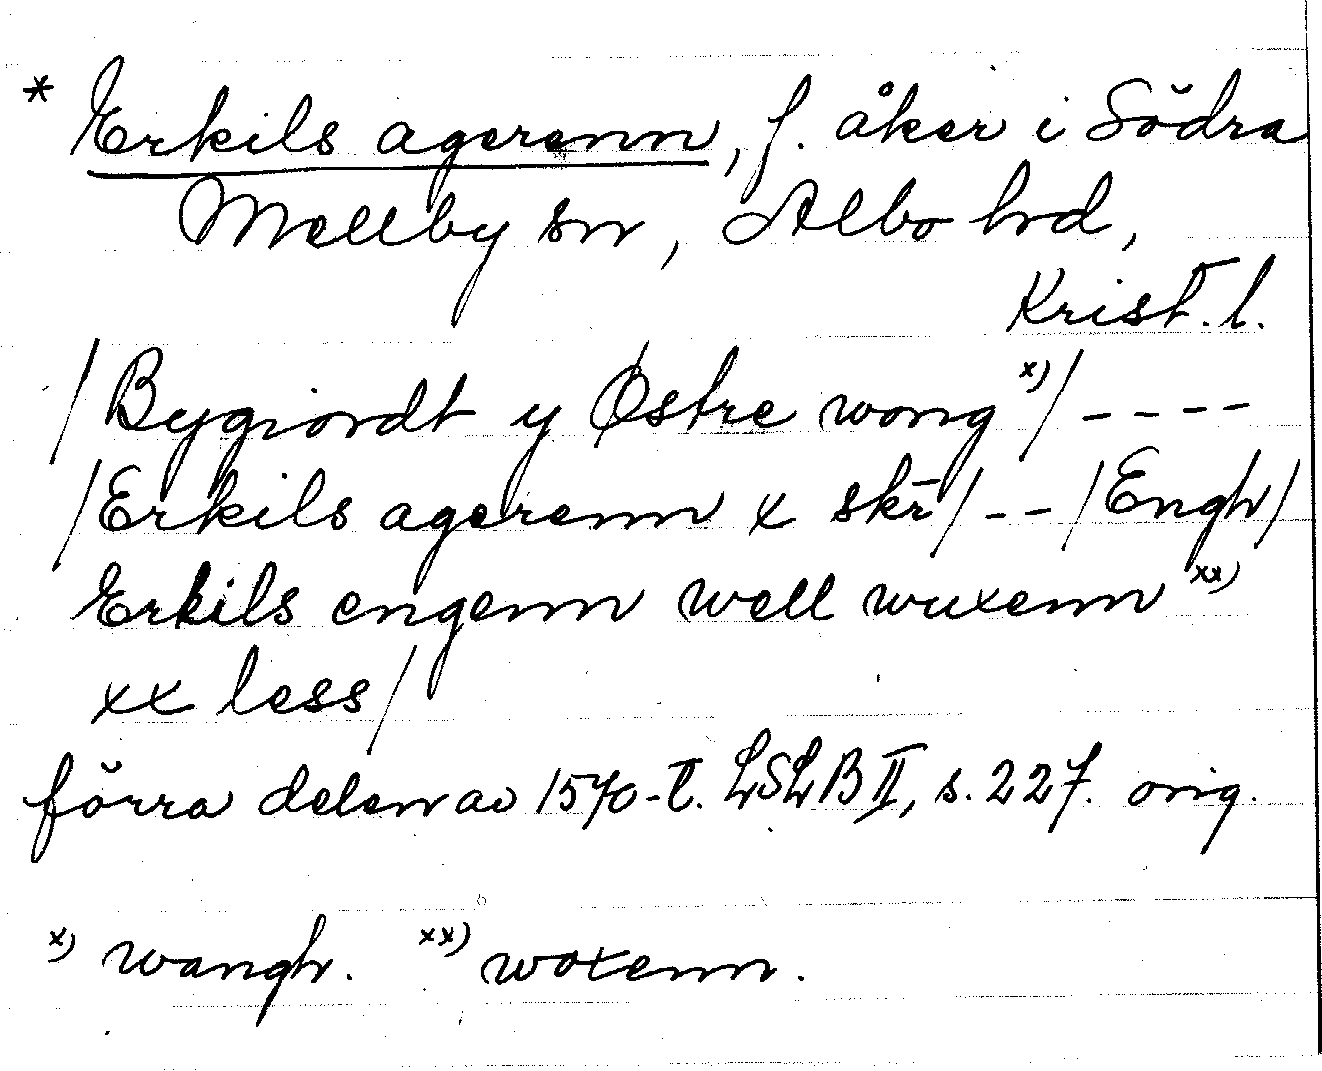 * Erkils agerenn, f. åker i Södra
Mellby sn, Albo hd,
Krist. l.
/Bygiordt y Østre wong x)/ ----
/Erkils agerenn x skr̄/ -- /Engh/
Erkils engenn well wuxenn xx)
xx less/
förra delen av 1570-t. LSLB II, s. 227. orig.
x) wangh. xx) woxenn.